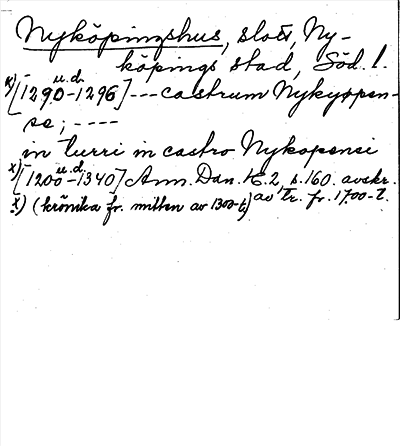 Nyköpingshus, slott, Ny-
köpings stad, Söd. l.
x) [u.d. 1290-1296] --- castrum Nykyøpen-
se; ----
in turri in castro Nykopensi
x) [u.d. 1200-1340] Ann. Dan. K. 2, s. 160. avskr.
x) (krönika fr. mitten av 1300-t) av tr. fr. 1700-t.